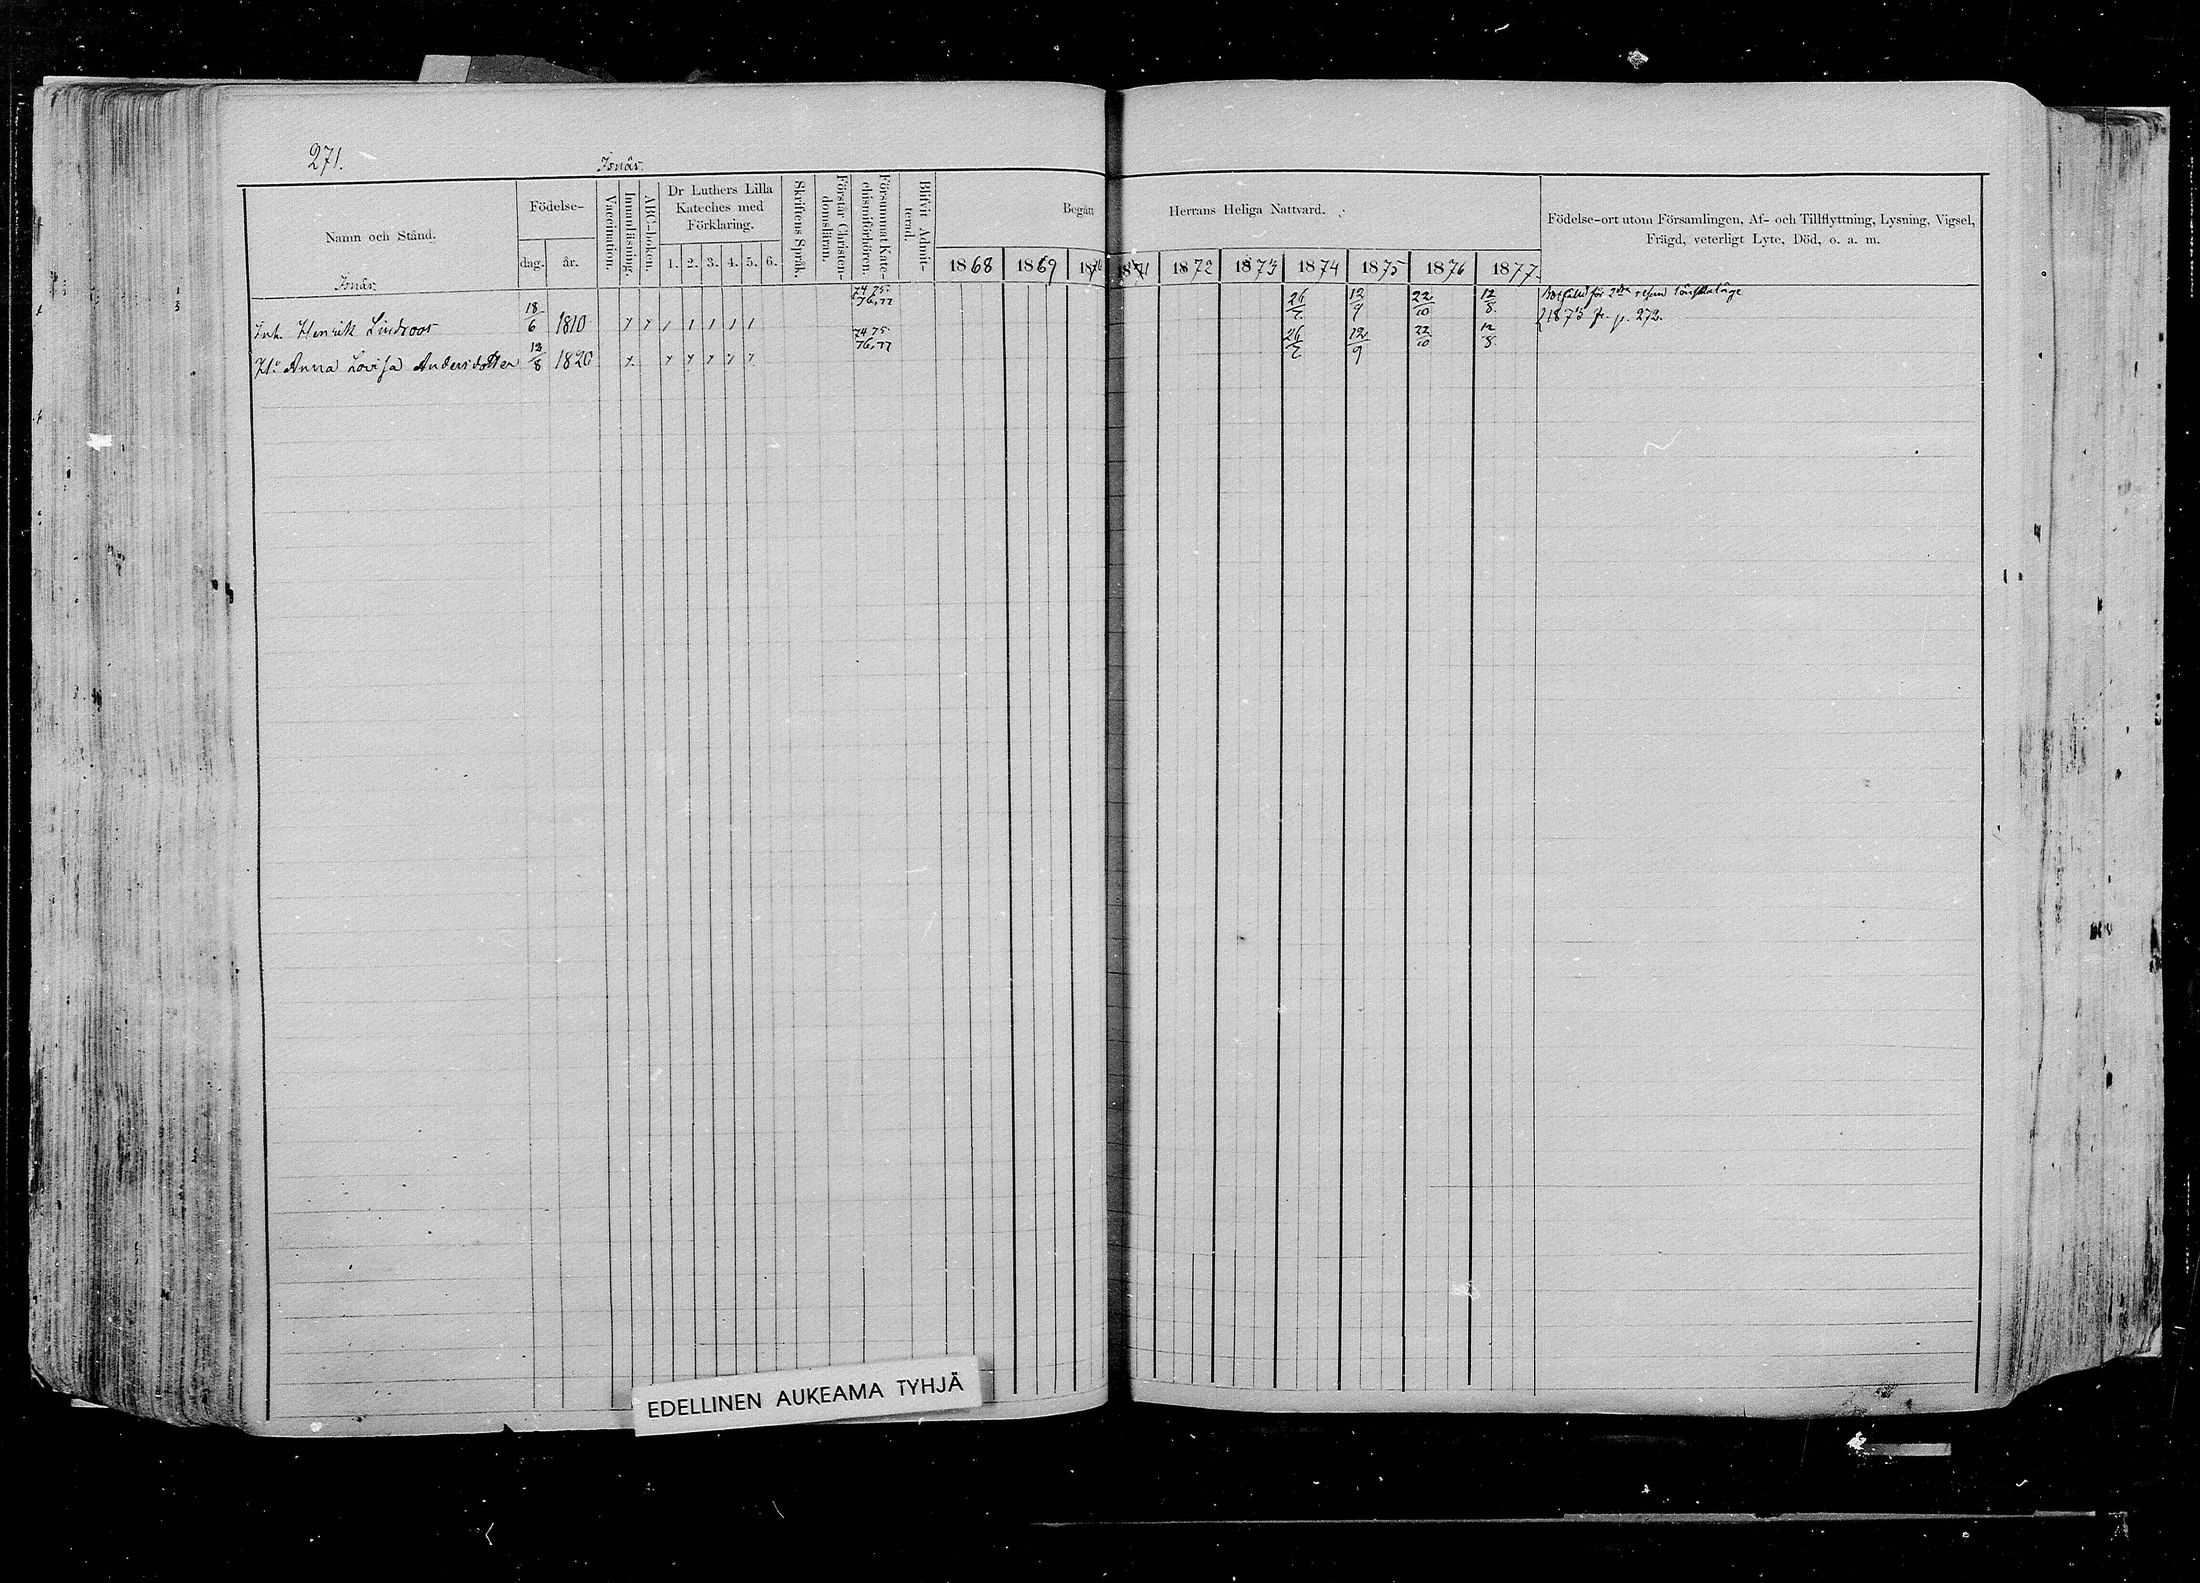 271.
Isnäs.
Namn och Stånd.
Födelse-
dag.
år.
Vaccination.
Innanläsning.
ABC-boken.
Dr Luthers Lilla
Kateches med
Förklaring.
1. 2. 3. 4. 5. 6.
Skriftens Språk.
Förstår Christen-
domsläran.
Försummat Kate-
chismiförhören.
Blifvit Admit-
terad.
Begått
Herrans Heliga Nattvard.
1868 1869 1870 1871 1872 1873 1874 1875 1876 1877.
Födelse-ort utom Församlingen, Af- och Tillflyttning, Lysning, Vigsel,
Frägd, veterligt Lyte, Död, o. a. m.
Isnäs
Inh. Henrik Lindroos 18/6 1810 74 75 76, 77 26/7 12/9 22/10 12/8
för 2dra resan
1873 fr. p. 272.
H:u Anna Lovisa Andersdotter 18/8 1820 74 75 76, 77 26/7 12/9 22/10 12/8
EDELLINEN AUKEAMA TYHJÄ